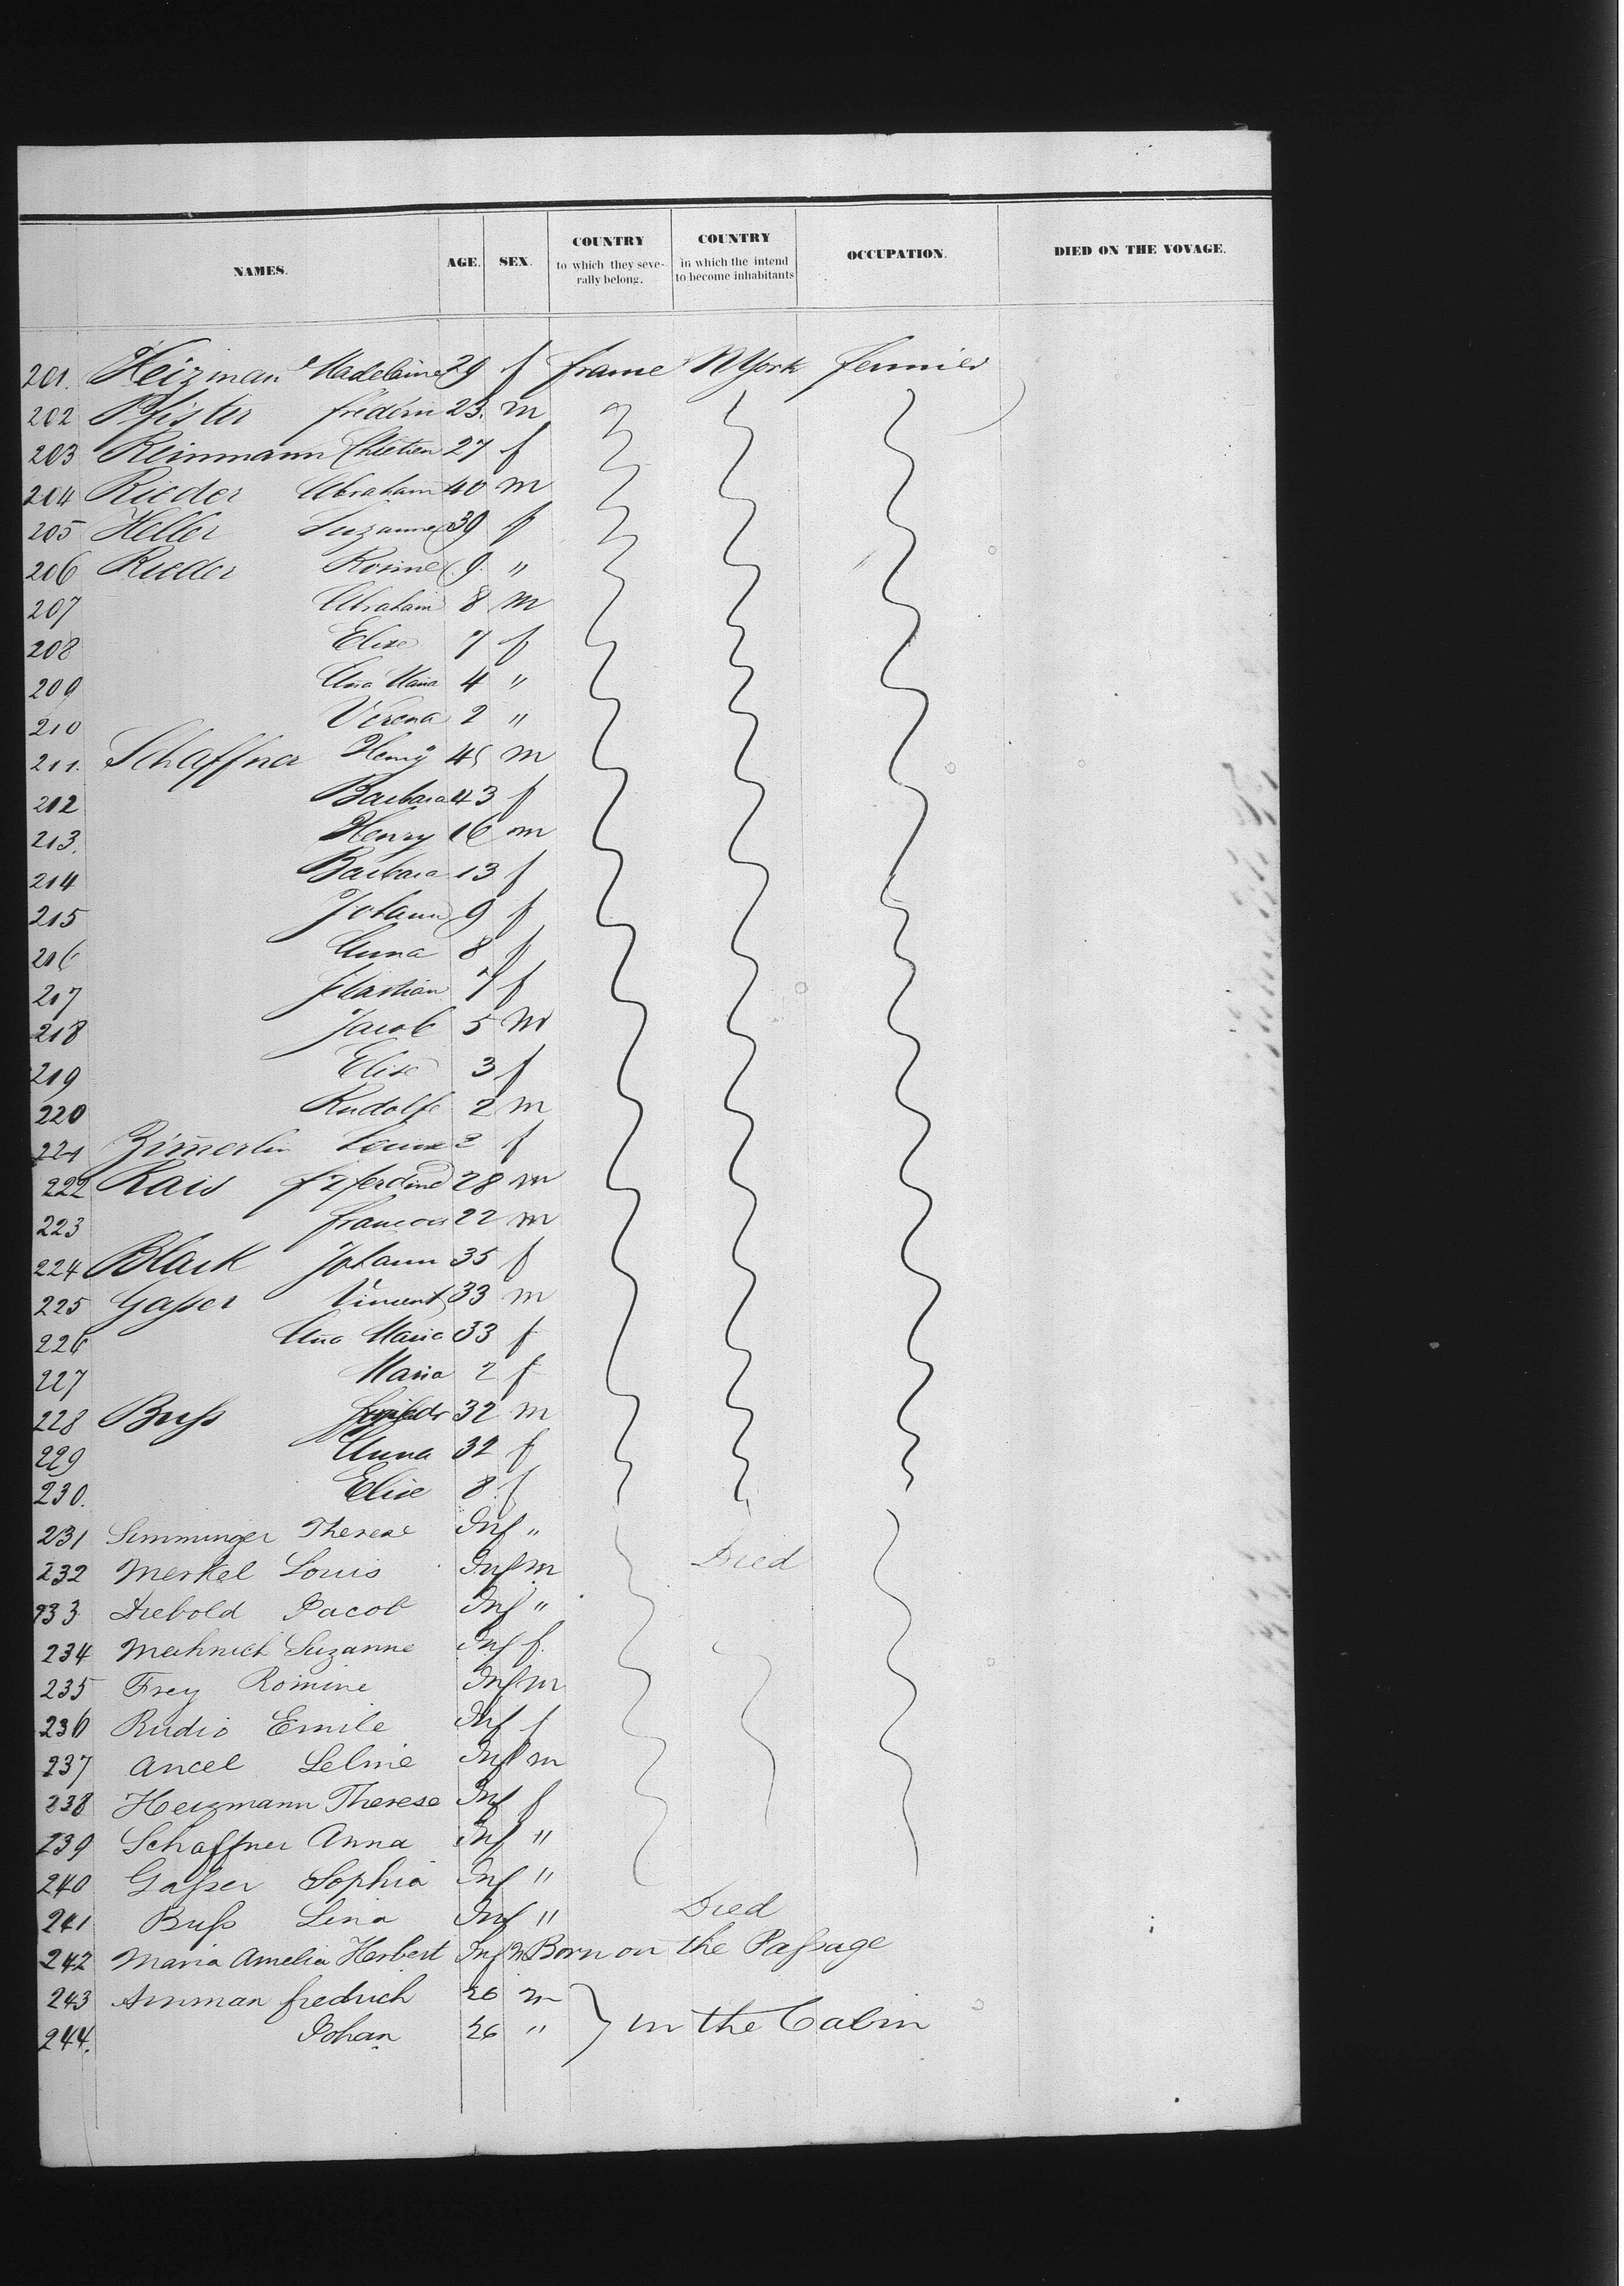 NAMES. AGE. SEX. COUNTRY to which they seve- rally belong. COUNTRY in which the intend to become inhabitants OCCUPATION. DIED ON THE VOYAGE.
201. Heizman Madelaine 29 f france N York fermier
202 Pfister frédéric 23. m
203 Reinmann Chretien 27 f
204 Rieder Abraham 40 m
205 Heller Suzanne 39 f
206 Rieder Rosine 9. "
207 Abraham 8 m
208 Elise 7 f
209 Ana Maria 4 "
210 Verena 2 "
211. Schaffner Henry 45 m
212 Barbara 43 f
213. Henry 16 m
214 Barbara 13 f
215 Johann 9 f
216 Anna 8 f
217 7 f
218 Jacob 5 m
219 Elise 3 f
220 Rudolf 2 m
221 Zim̄erlin Louise 2 f
222 Rais 28 m
223 francois 22 m
224 Black Johann 35 f
225 Gaſser Vincent 33 m
226 Ana Maria 33 f
227 Maria 2 f
228 Buſs 32 m
229 Anna 32 f
230. Elise 8 f
231 Simminger Therese Inf "
232 Merkel Louis Inf m Died
233 Diebold Jacob Inf "
234 Suzanne Inf f.
235 Frey Romine Inf m
236 Rudio Emile Inf f
237 Ancel Inf m
238 Heizmann Therese Inf f
239 Schaffner Anna Inf "
240 Gaſser Sophia Inf "
241 Buſs Lina Inf " Died
242 Maria Amelia Herbert Inf Born on the Paſsage
243 Amman fredrich 26 m
244. Johan 26 " } in the Cabin